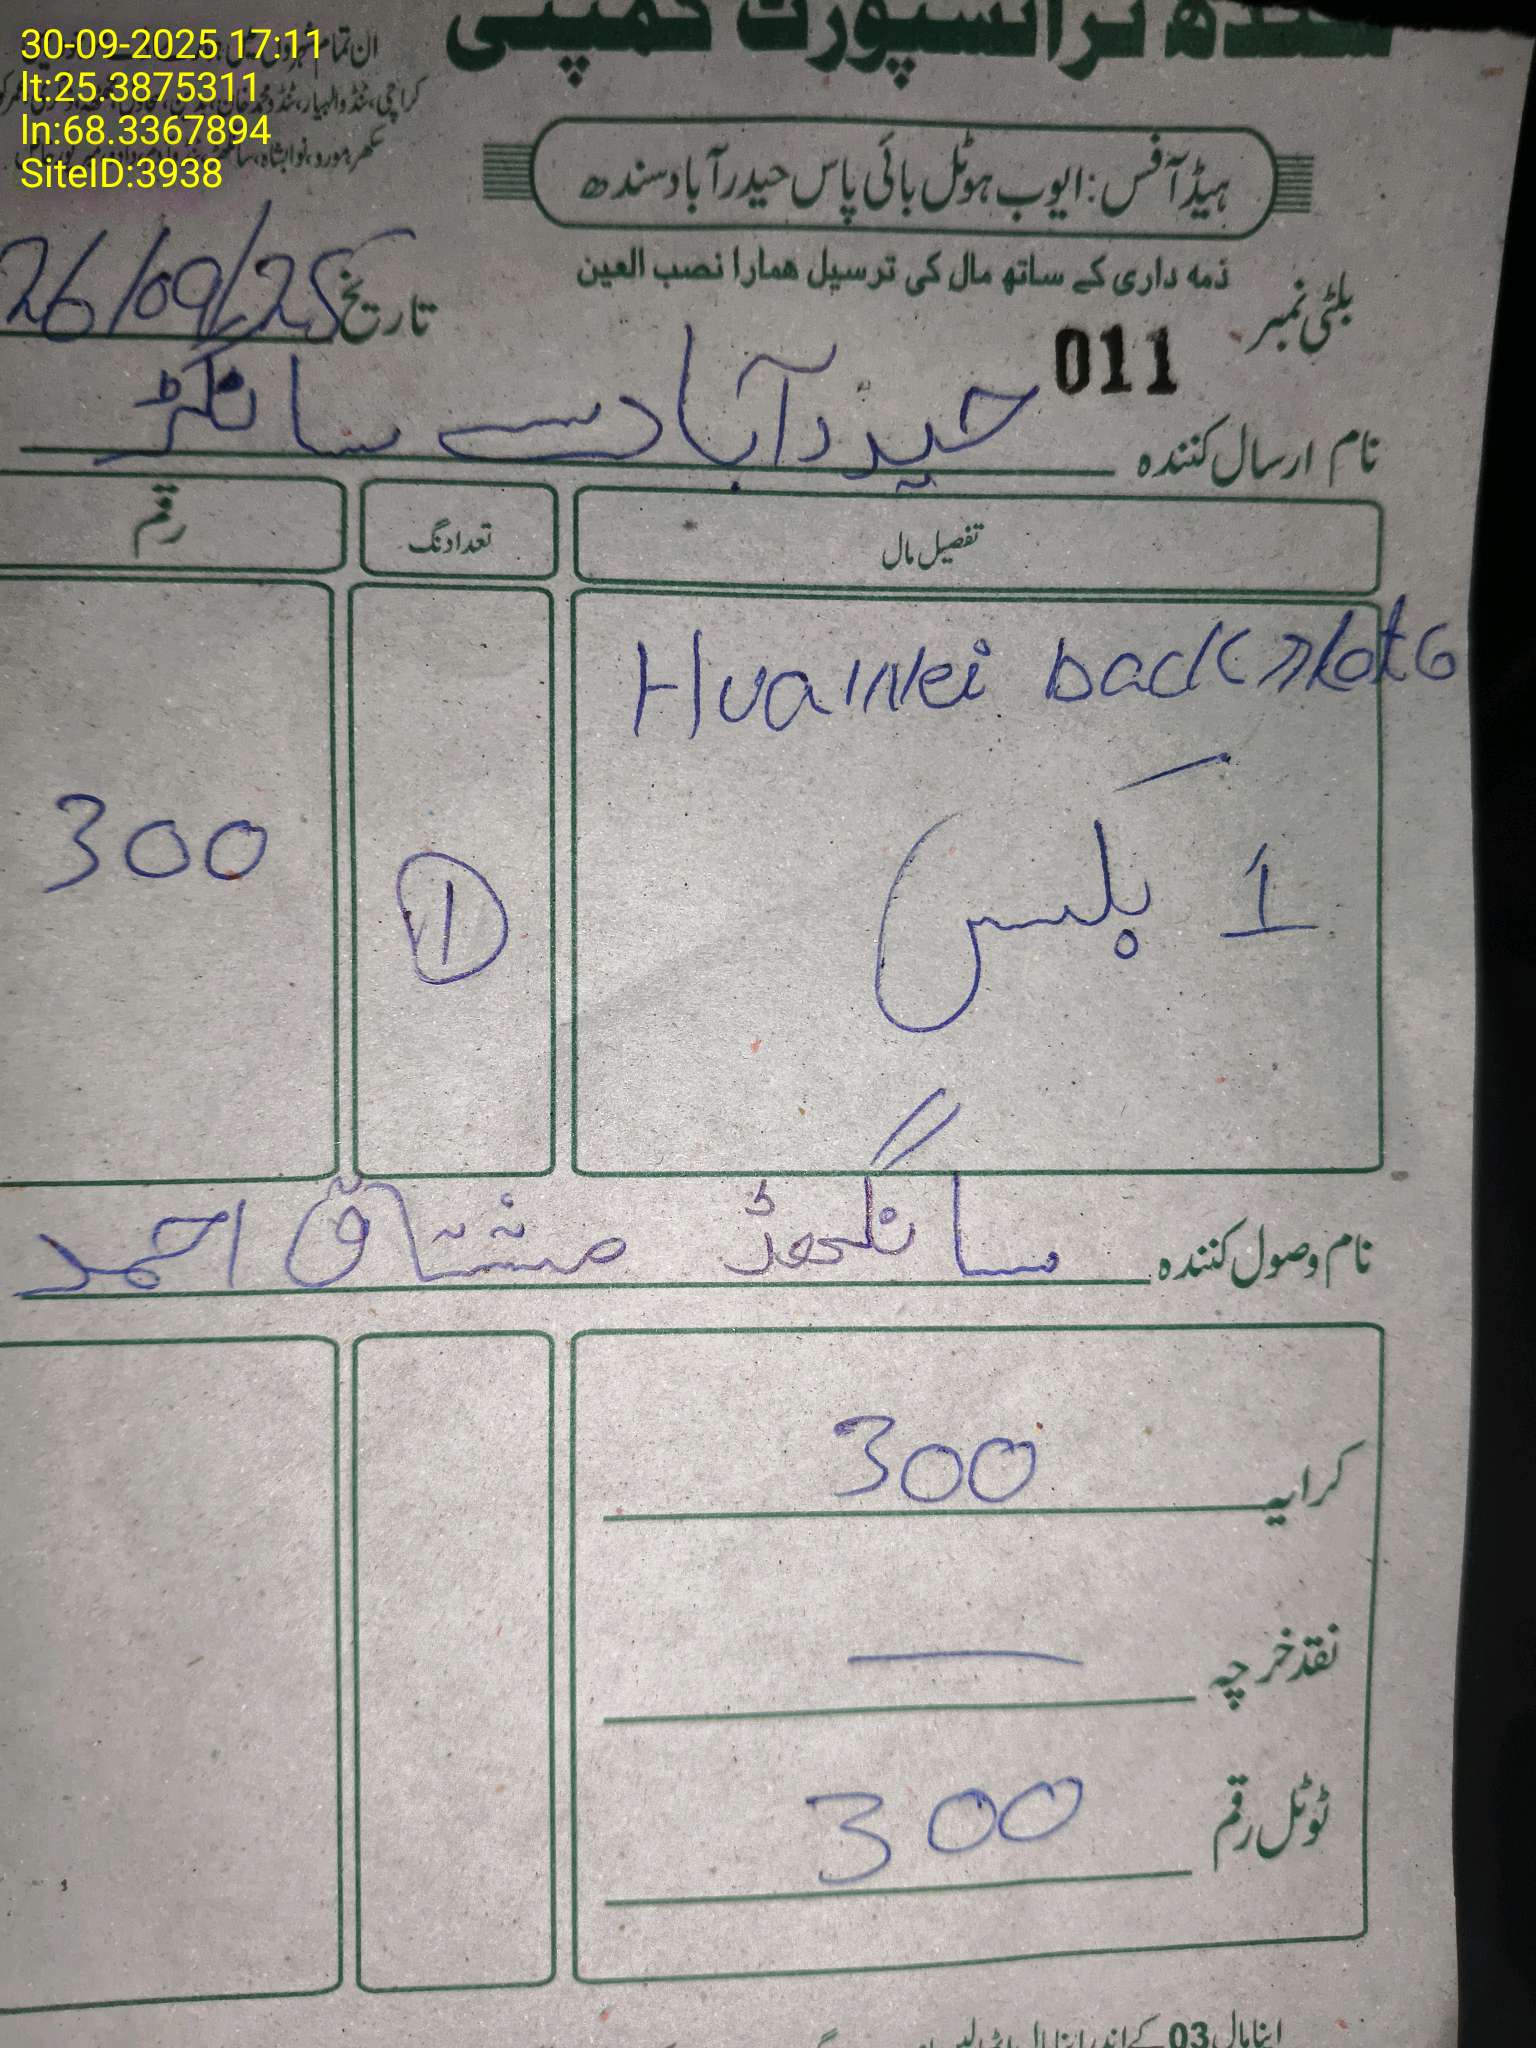 30-09-2025 17:11
lt:25.3875311
ln:68.3367894
SiteID:3938
سندھ ٹرانسپورٹ کمپنی
ان تمام شہروں میں
کراچی، ٹنڈوالہیار، ٹنڈو محمد خان، بدین،
سکھر، مورو، نوابشاہ،
ہیڈ آفس: ایوب ہوٹل بائی پاس حیدرآباد سندھ
ذمہ داری کے ساتھ مال کی ترسیل ہمارا نصب العین
بلٹی نمبر 011
تاریخ 26/09/25
نام ارسال کنندہ حیدرآباد سے سانگڑ
تفصیل مال تعداد نگ رقم
Huawei back
1 بکس 1 300
نام وصول کنندہ سانگھڑ مشتاق احمد
کرایہ 300
نقد خرچہ —
ٹوٹل رقم 300
اپنا مال 03 کے اندر اندر